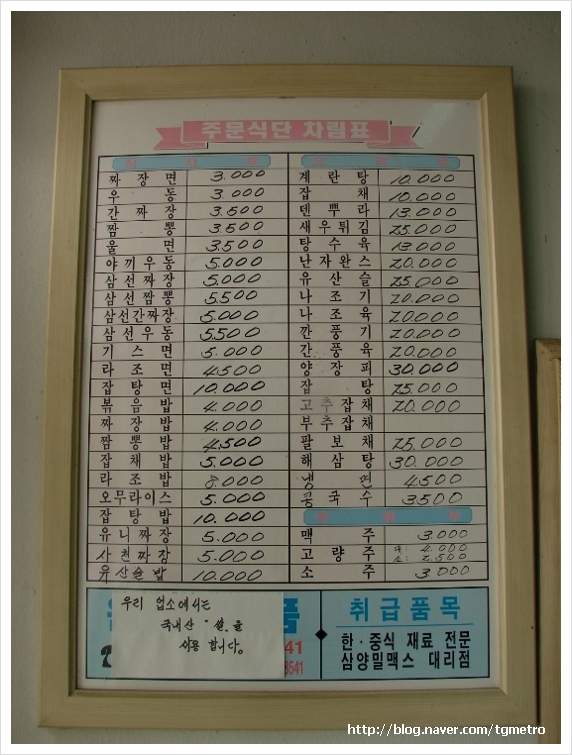 주문식단 차림표
식 사 류
짜 장 면 3.000
우 동 3.000
간 짜 장 3.500
짬 뽕 3500
울 면 3500
야 끼 우 동 5.000
삼 선 짜 장 5.000
삼 선 짬 뽕 5500
삼선간짜장 5.000
삼 선 우 동 5.500
기 스 면 5.000
라 조 면 4.500
잡 탕 면 10.000
볶 음 밥 4.000
짜 장 밥 4.000
짬 뽕 밥 4.500
잡 채 밥 5.000
라 조 밥 8.000
오므라이스 5.000
잡 탕 밥 10.000
유 니 짜 장 5.000
사 천 짜 장 5.000
유 산 슬 밥 10.000
계 란 탕 10.000
잡 채 10.000
덴 뿌 라 13.000
새 우 튀 김 25.000
탕 수 육 13.000
난 자 완 스 20.000
유 산 슬 25.000
나 조 기 20.000
나 조 육 20.000
깐 풍 기 20.000
간 풍 육 20.000
양 장 피 30.000
잡 탕 25.000
고 추 잡 채 20.000
부 추 잡 채
팔 보 채 25.000
해 삼 탕 30.000
냉 면 4500
콩 국 수 3500
맥 주 3.000
고 량 주 대: 4.000
소: 2.500
소 주 3.000
우리 업소에서는
국내산 "쌀"을
사용 합니다.
품
41
3541
취급품목
한·중식 재료 전문
삼양밀맥스 대리점
http://blog.naver.com/tgmetro